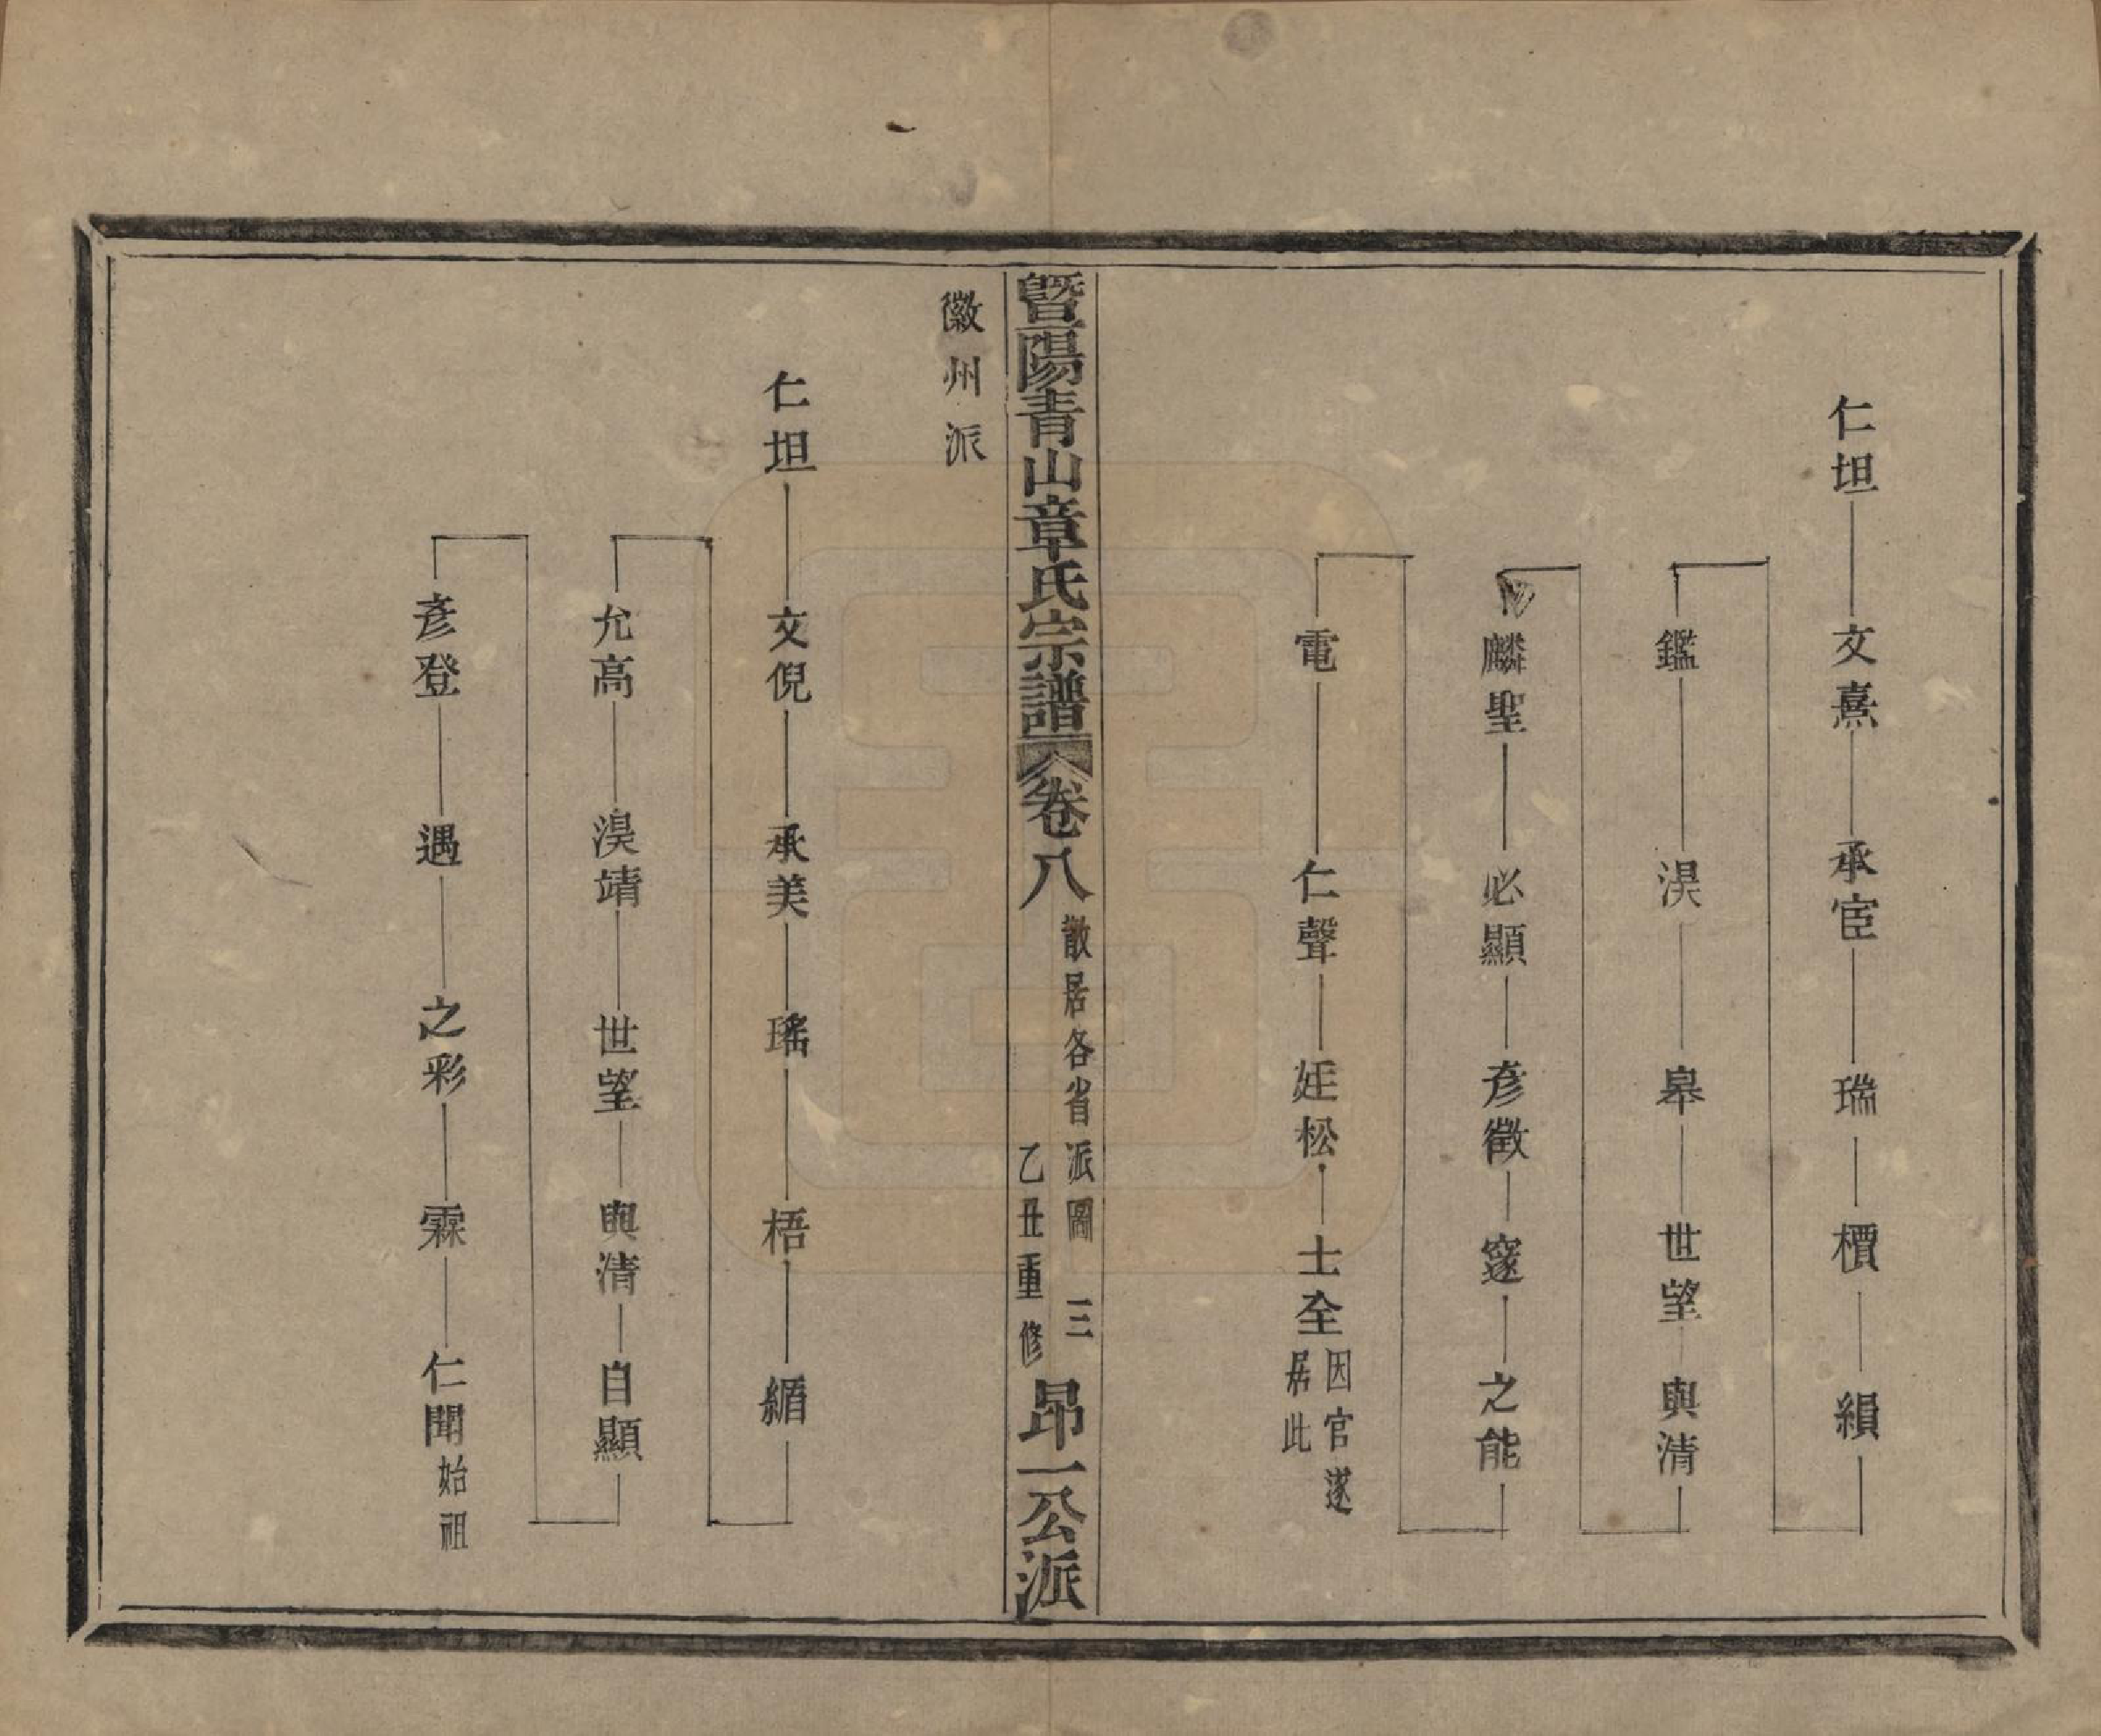 仁坦 文熹 承宦 瑞 櫝 縜
鑑 淏 皋 世望 與清
麟聖 必顯 彥徵 邃 之能
電 仁聲 廷松 士全 因官遂居此
暨陽青山章氏宗譜 卷八 散居各省派圖 三 乙丑重修 昂一公派
徽州派
仁坦 文倪 承美 瑤 梧 緬
允高 淏靖 世望 與清 自顯
彥登 遇 之彩 霖 仁聞 始祖